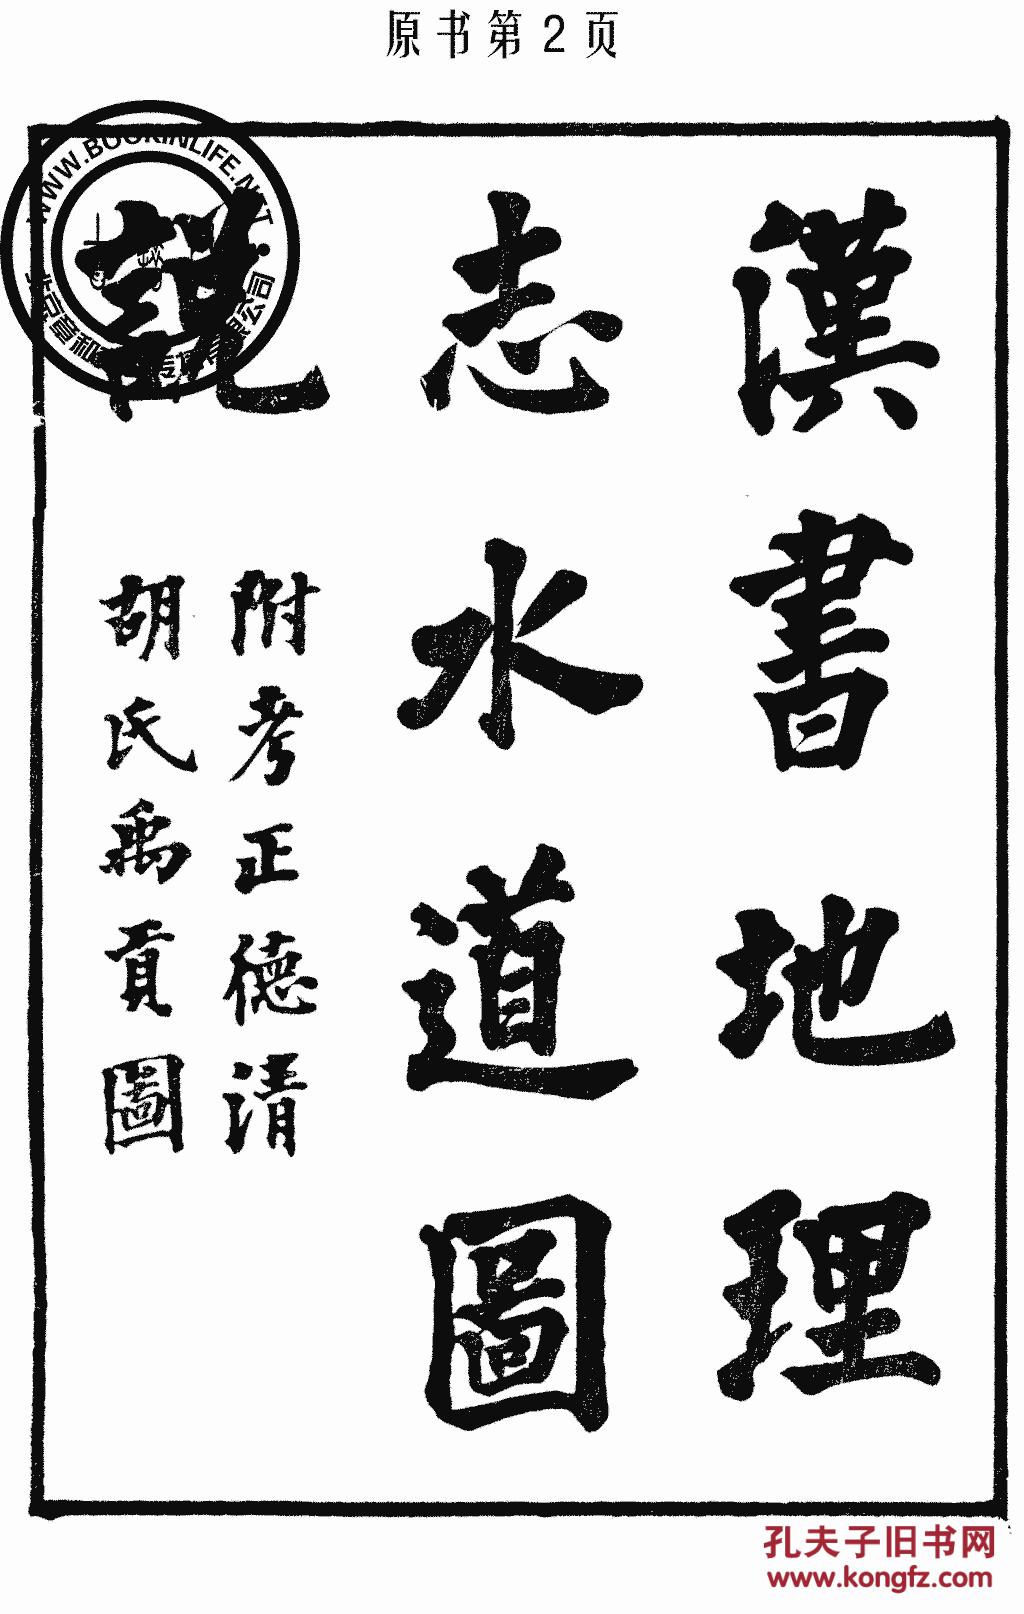 原书第2页
漢書地理
志水道圖
説
附考正德清
胡氏禹貢圖
WWW.BOOKINLIFE.NET
孔夫子旧书网
www.kongfz.com